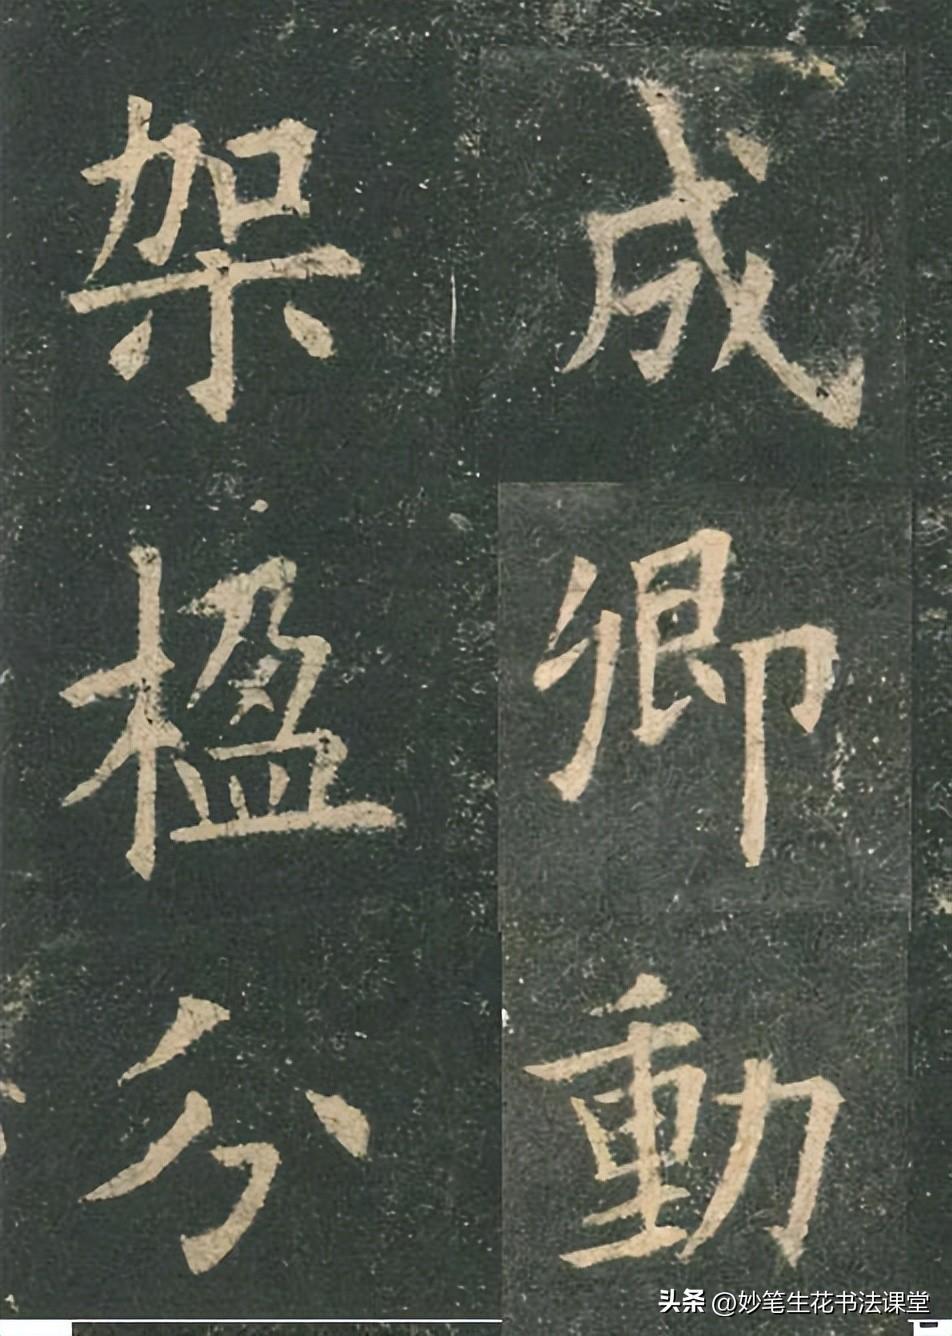 成卿動
架楹分
头条 @妙笔生花书法课堂